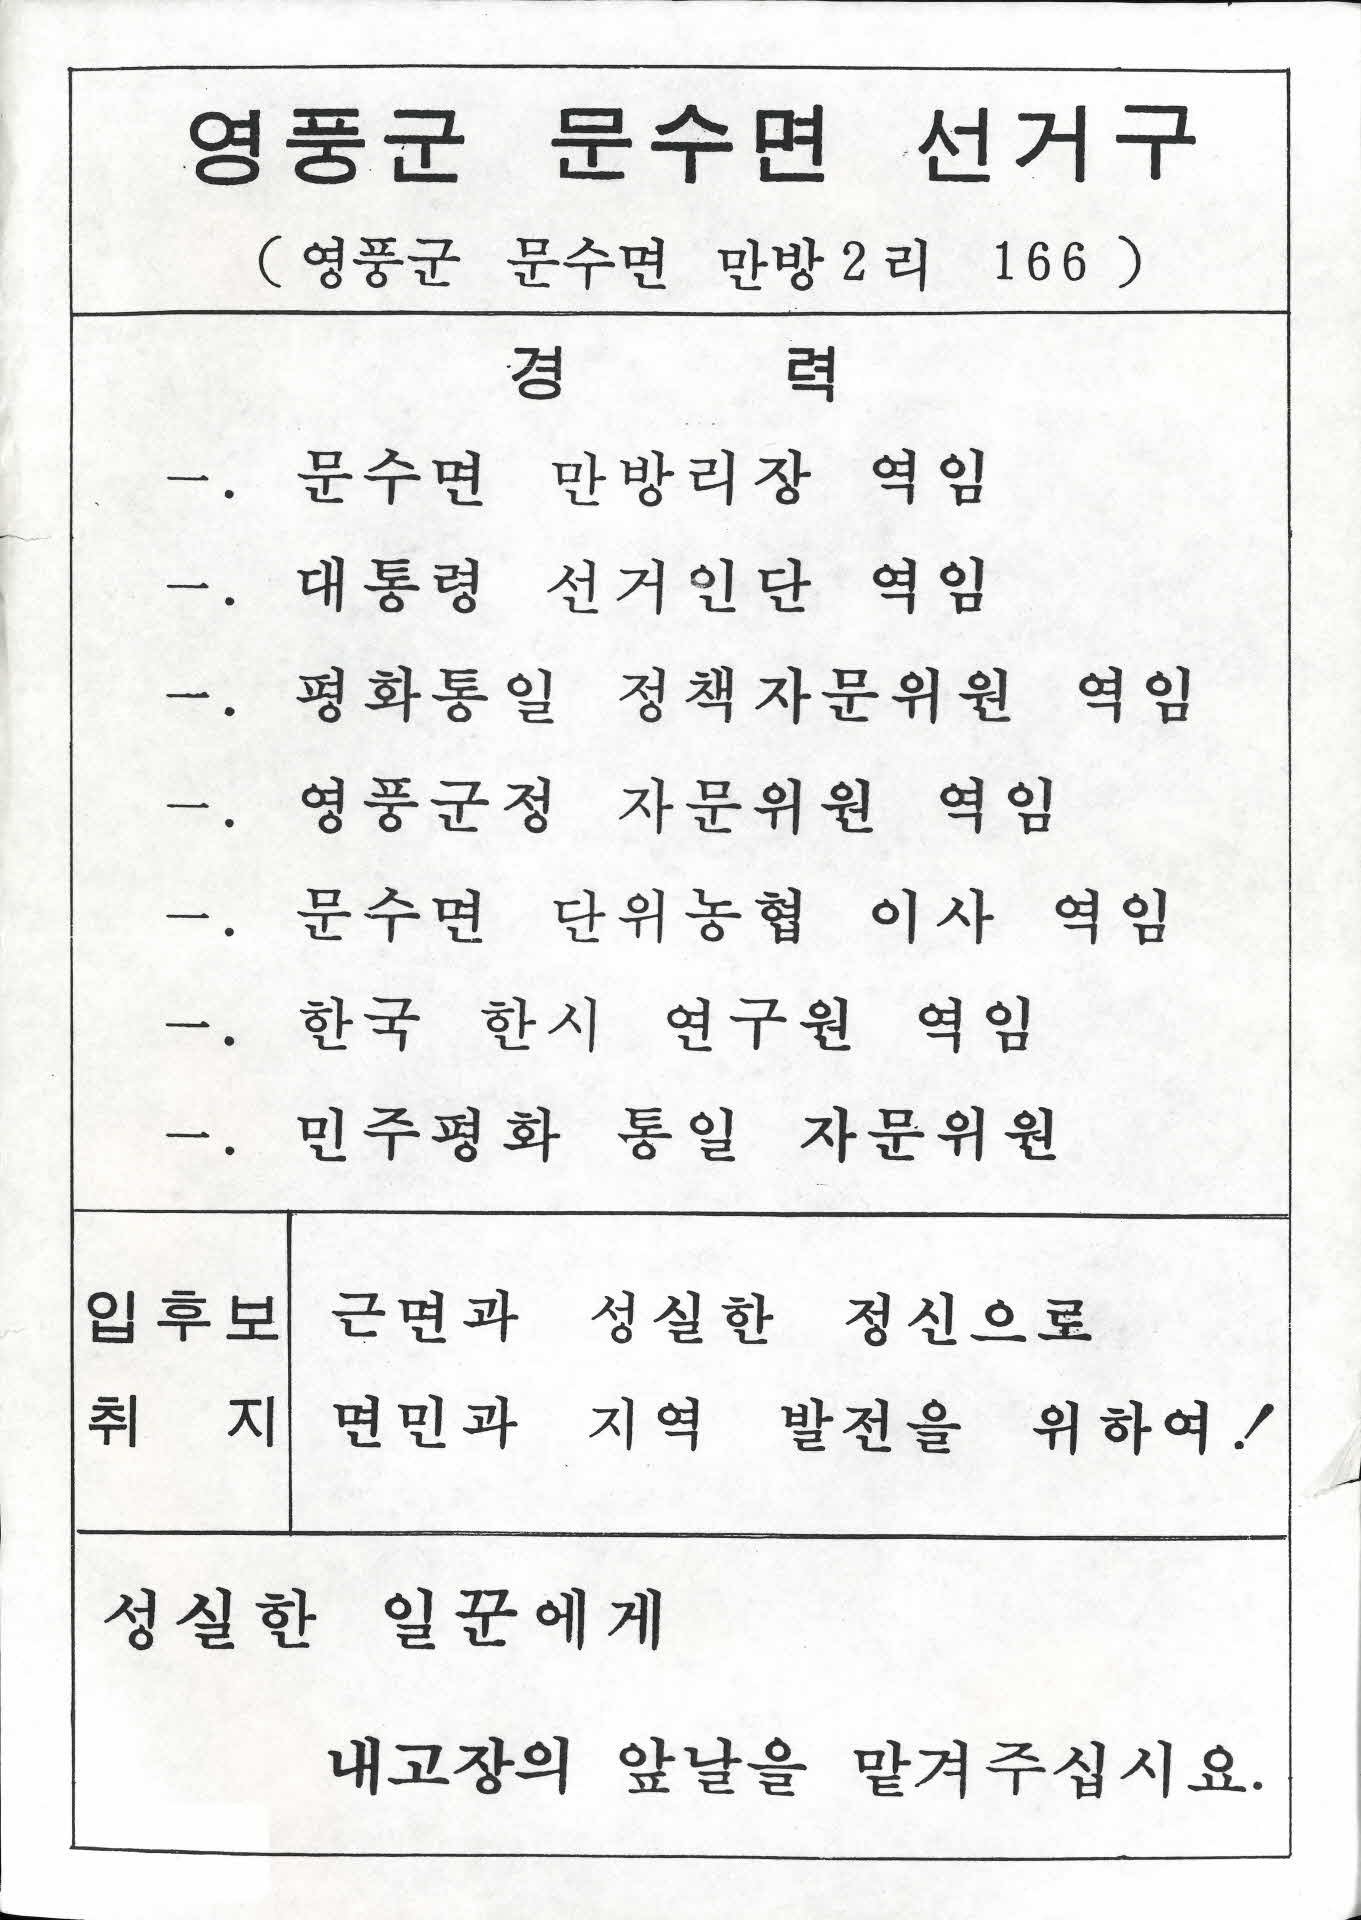 영풍군 문수면 선거구
( 영풍군 문수면 만방2리 166 )
경 력
一. 문수면 만방리장 역임
一. 대통령 선거인단 역임
一. 평화통일 정책자문위원 역임
一. 영풍군정 자문위원 역임
一. 문수면 단위농협 이사 역임
一. 한국 한시 연구원 역임
一. 민주평화 통일 자문위원
입후보
취 지
근면과 성실한 정신으로
면민과 지역 발전을 위하여!
성실한 일꾼에게
내고장의 앞날을 맡겨주십시요.